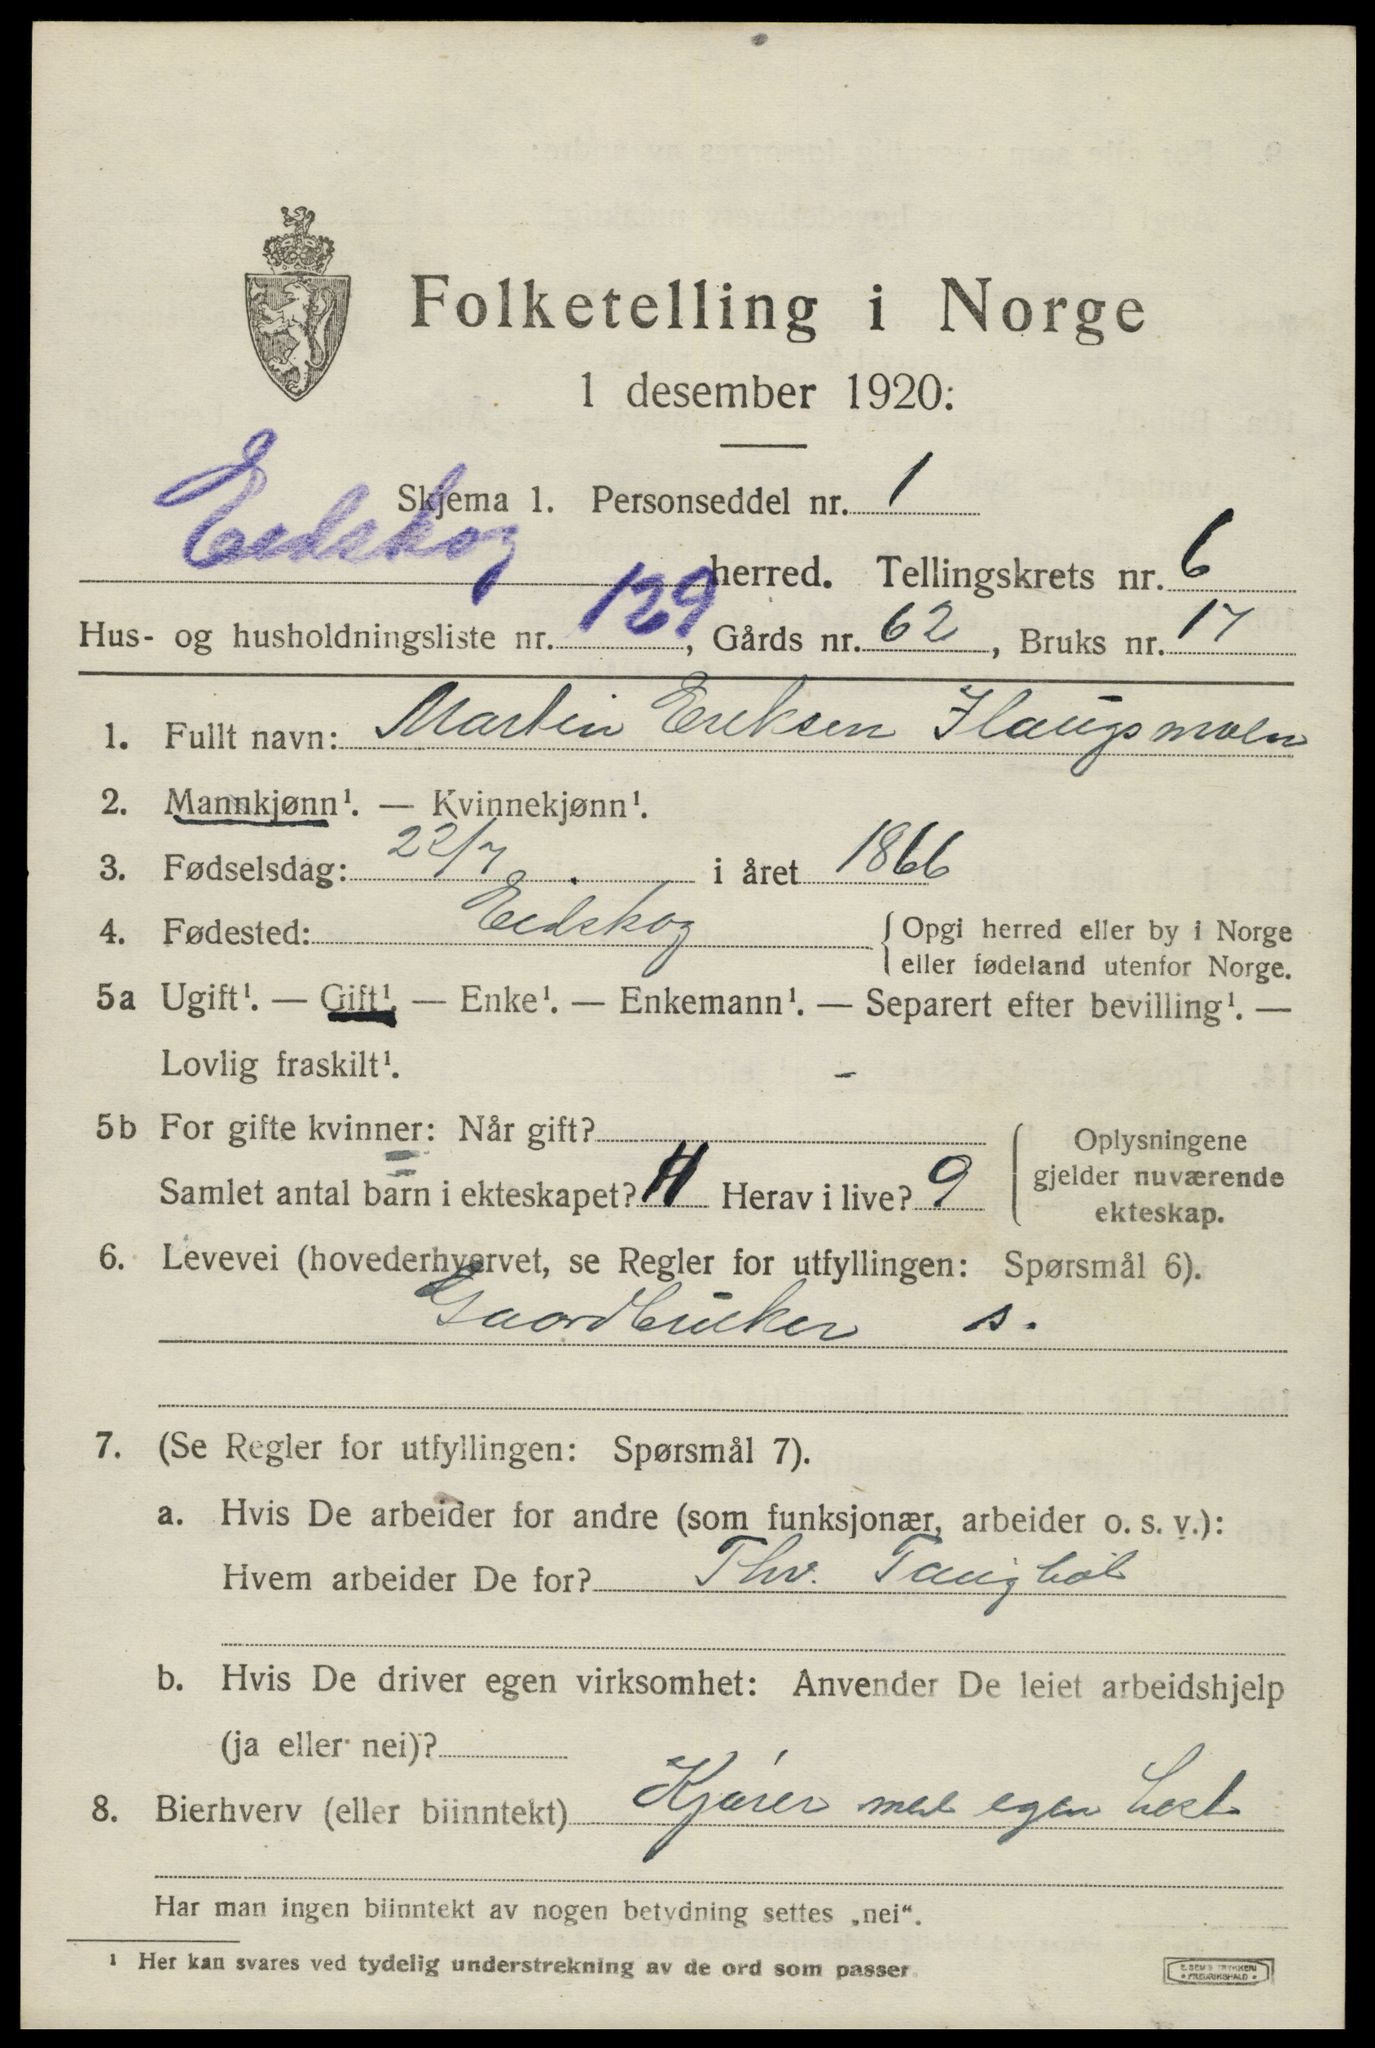 Folketelling i Norge
1 desember 1920:
Skjema 1. Personseddel nr. 1
Eidskog herred. Tellingskrets nr. 6
Hus- og husholdningsliste nr. 129, Gårds nr. 62, Bruks nr. 17
1. Fullt navn: Martin Eriksen Haugsmoen
2. Mannkjønn¹. — Kvinnekjønn¹.
3. Fødselsdag: 22/7 i året 1866
4. Fødested: Eidskog { Opgi herred eller by i Norge
eller fødeland utenfor Norge.
5a Ugift¹. — Gift¹. — Enke¹. — Enkemann¹. — Separert efter bevilling¹. —
Lovlig fraskilt¹. -
5b For gifte kvinner: Når gift?
Samlet antal barn i ekteskapet? 11 Herav i live? 9
Oplysningene
gjelder nuværende
ekteskap.
6. Levevei (hovederhvervet, se Regler for utfyllingen: Spørsmål 6).
Gaardbruker s.
7. (Se Regler for utfyllingen: Spørsmål 7).
a. Hvis De arbeider for andre (som funksjonær, arbeider o. s. v.):
Hvem arbeider De for? Thv.
b. Hvis De driver egen virksomhet: Anvender De leiet arbeidshjelp
(ja eller nei)?
8. Bierhverv (eller biinntekt) Kjører med egen hest
Har man ingen biinntekt av nogen betydning settes „nei“.
¹ Her kan svares ved tydelig understrekning av de ord som passer.
E. SEM'S TRYKKERI
• FREDRIKSHALD •